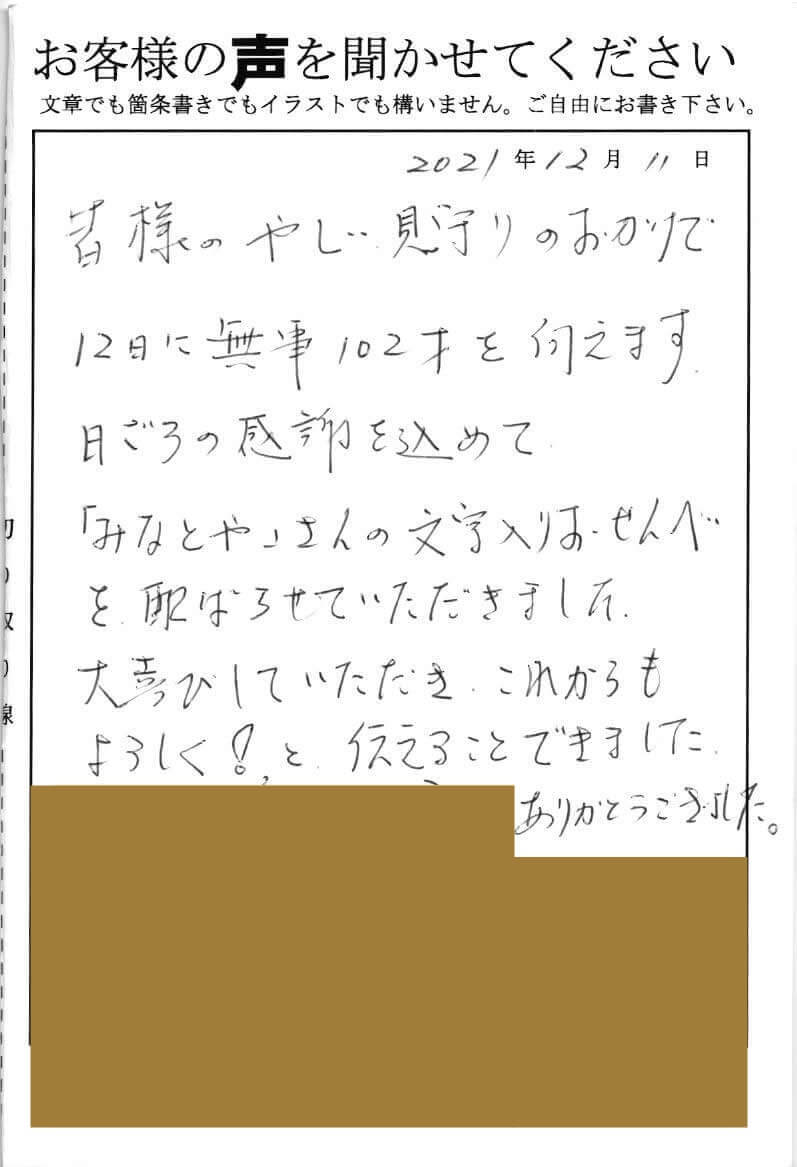 お客様の声を聞かせてください
文章でも箇条書きでもイラストでも構いません。ご自由にお書き下さい。
2021年12月11日
皆様のやじい見守りのおかげで
12日に無事102才を伺えます
日ごろの感謝を込めて
「みなとや」さんの文字入りおせんべ
を配ばらせていただきました.
大喜びしていただき、これからも
よろしく!と、伝えることできました.
ありがとうござました。
切り取り線